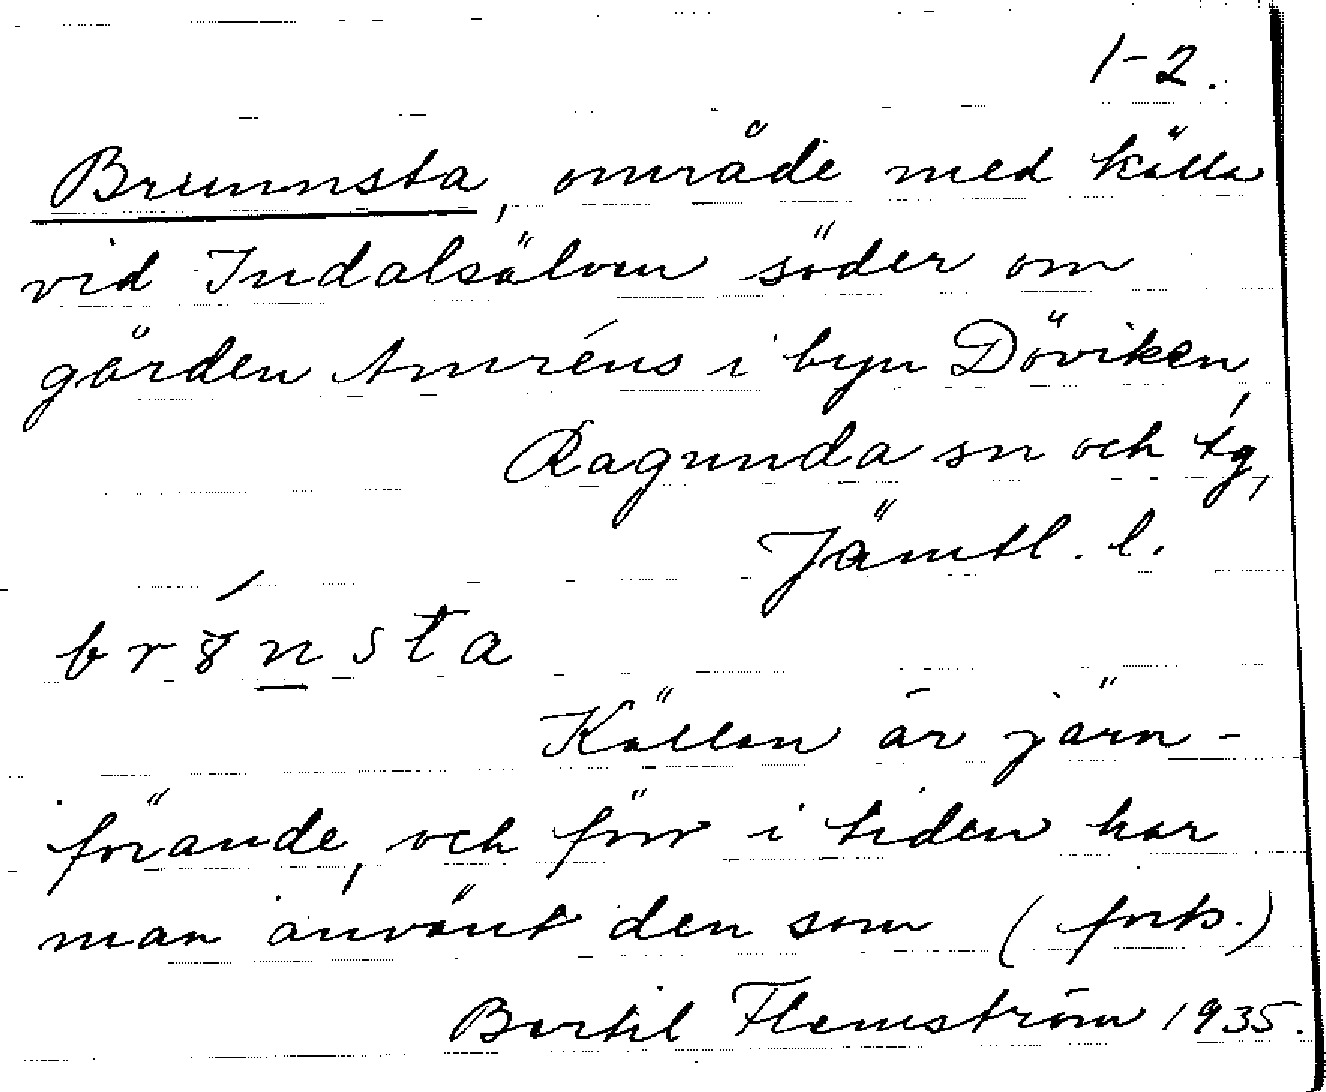 1-2.
Brunnsta, område med källa
vid Indalsälven söder om
gården Amréns i byn Döviken,
Ragunda sn och tg,
Jämtl. l.
nsta
Källan är järn-
förande, och förr i tiden har
man använt den som (forts.)
Bertil Flemström 1935.